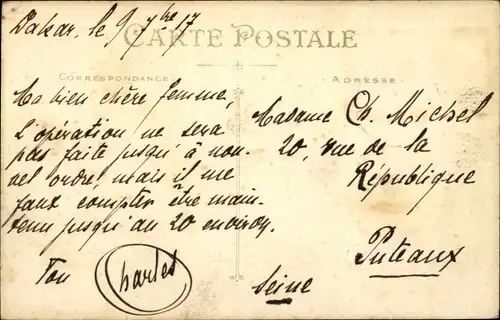 Dakar, le 9 7bre 17
CARTE POSTALE
CORRESPONDANCE
ADRESSE
Ma bien chère femme,
L'opération ne sera
pas faite jusqu'à nou-
vel ordre, mais il me
faut compter être main-
tenu jusqu'au 20 environ.
Ton Charles
Madame Ch. Michel
20, rue de la
République
Puteaux
Seine